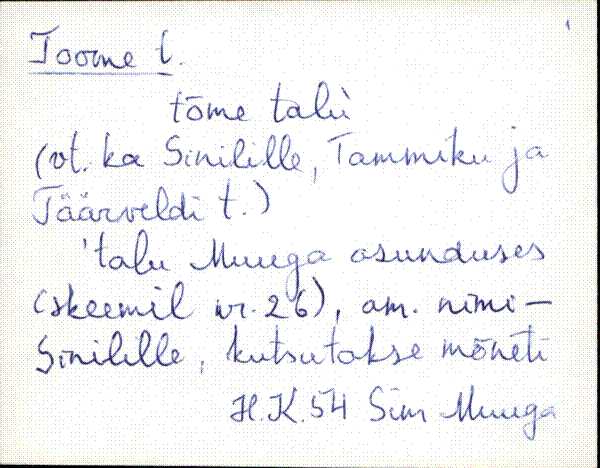 Toome t.
tōme talù
(vt. ka Sinilille, Tammiku ja
Täärveldi t.)
'talu Muuga asunduses
(skeemil nr. 26), am. nimi –
Sinilille, kutsutakse mõneti
H.K. 54 Sim Muuga